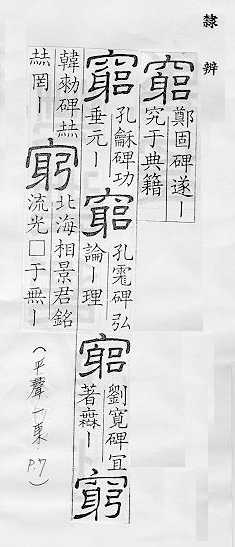 隸辨
竆
鄭固碑遂丨
究于典籍
竆
孔龢碑功
垂元丨
竆
孔彪碑弘
論丨理
竆
劉寬碑冝
著無丨
竆
韓勑碑赫
赫罔丨
窮
北海相景君銘
流光□于無丨
(平聲一東 P.7)